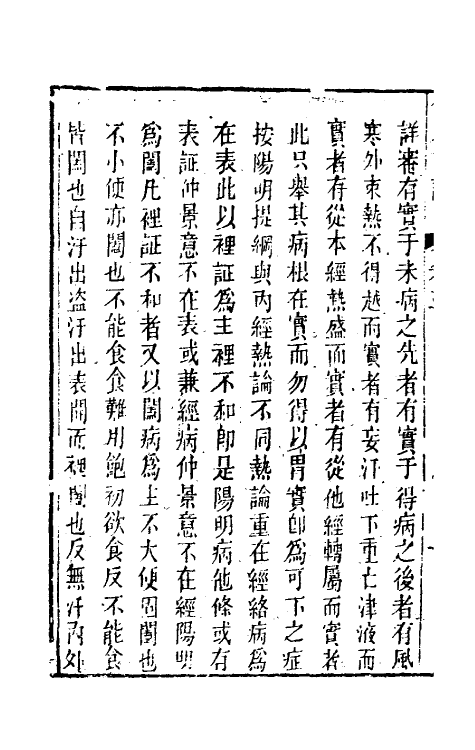 詳審有實于未病之先者有實于得病之後者有風
寒外束熱不得越而實者有妄汗吐下重亡津液而
實者有從本經熱盛而實者有從他經轉屬而實者
此只舉其病根在實而勿得以胃實卽為可下之症
按陽明提綱與內經熱論不同熱論重在經絡病為
在表此以裡証為主裡不和卽是陽明病他條或有
表証仲景意不在表或兼經病仲景意不在經陽明
為闔凡裡証不和者又以闔病為主不大便固闔也
不小便亦闔也不能食食難用飽初欲食反不能食
皆闔也自汗出盗汗出表開而裡闔也反無汗內外